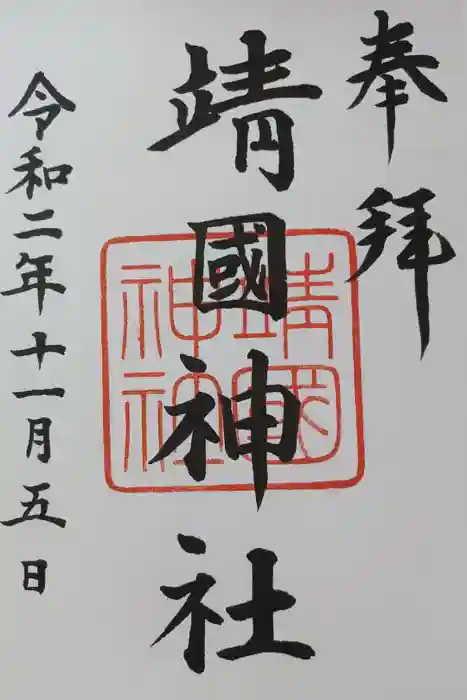 奉拝
靖國神社
靖國
神社
令和二年十一月五日